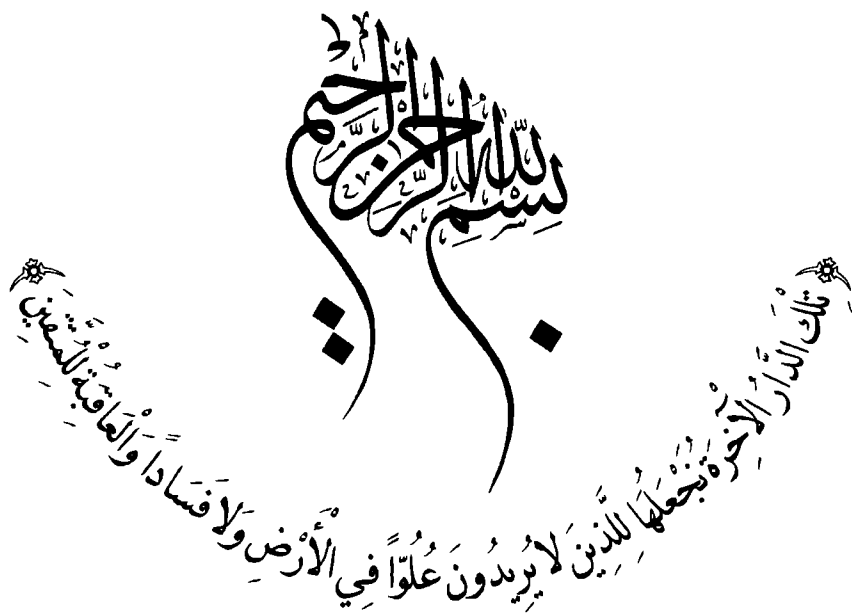 بِسْمِ اللهِ الرَّحْمٰنِ الرَّحِيمِ
تِلْكَ الدَّارُ الْآخِرَةُ نَجْعَلُهَا لِلَّذِينَ لَا يُرِيدُونَ عُلُوًّا فِي الْأَرْضِ وَلَا فَسَادًا وَالْعَاقِبَةُ لِلْمُتَّقِينَ